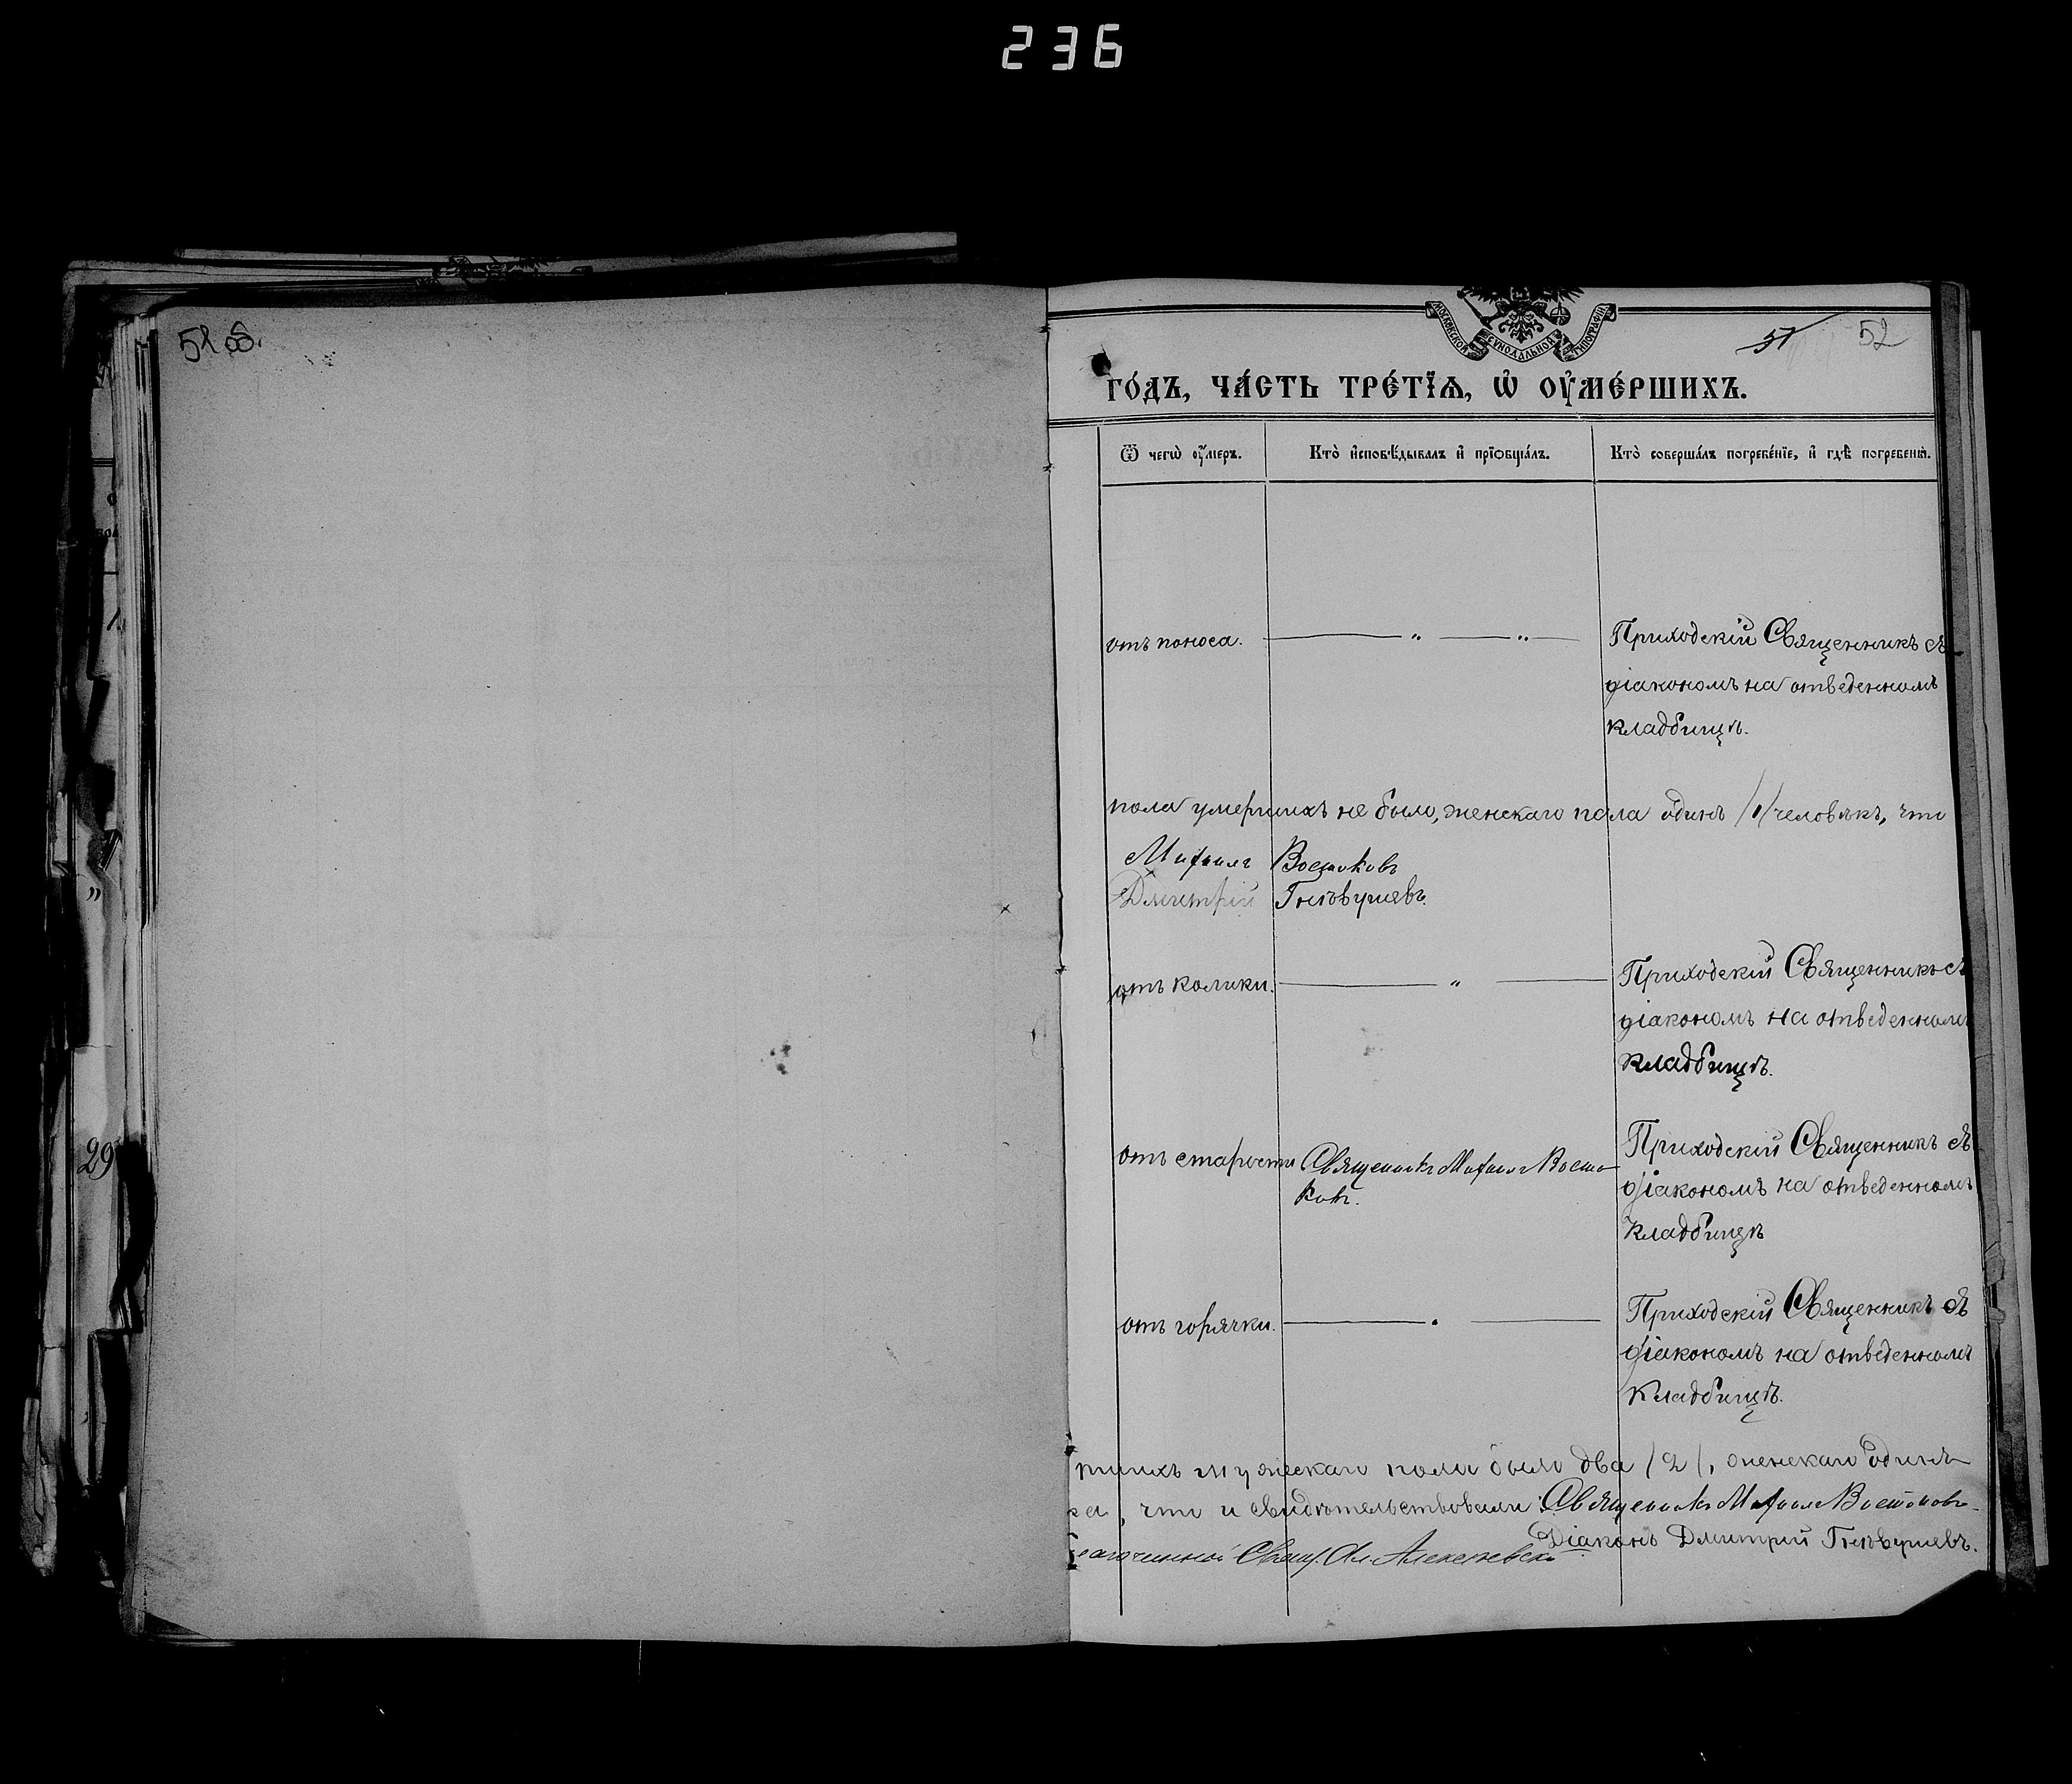 236
51 об.
МОСКОВСКОЙ СѴНОДАЛЬНОЙ ТИПОГРАФІИ
51 52
го́дъ, ча́сть тре́тїѧ, ѽ оу҆ме́ршихъ.
Ѿ чегѡ̀ оу҆́меръ. Кто̀ и҆сповѣ́дывалъ и҆ прїѡбща́лъ. Кто̀ соверша́лъ погребе́нїе, и҆ гдѣ̀ погребены̀.
отъ поноса. Приходскій Священникъ съ
діакономъ на отведенномъ
кладбищѣ.
пола умершихъ не было, женскаго пола одинъ /1/ человѣкъ, что
Михаилъ Востоковъ
Дмитрій Гнѣвушевъ.
отъ колики. Приходскій Священникъ съ
діакономъ на отведенномъ
кладбищѣ.
отъ старости Священникъ Михаилъ Восто-
ковъ. Приходскій Священникъ съ
діакономъ на отведенномъ
кладбищѣ
отъ горячки. Приходскій Священникъ съ
діакономъ на отведенномъ
кладбищѣ.
шихъ мужескаго пола было два /2/, женскаго одинъ
ка, что и свидѣтельствовали: Священникъ Михаилъ Востоковъ.
Діаконъ Дмитрій Гнѣвушевъ.
Свящ. Ал. Алексѣевск
29